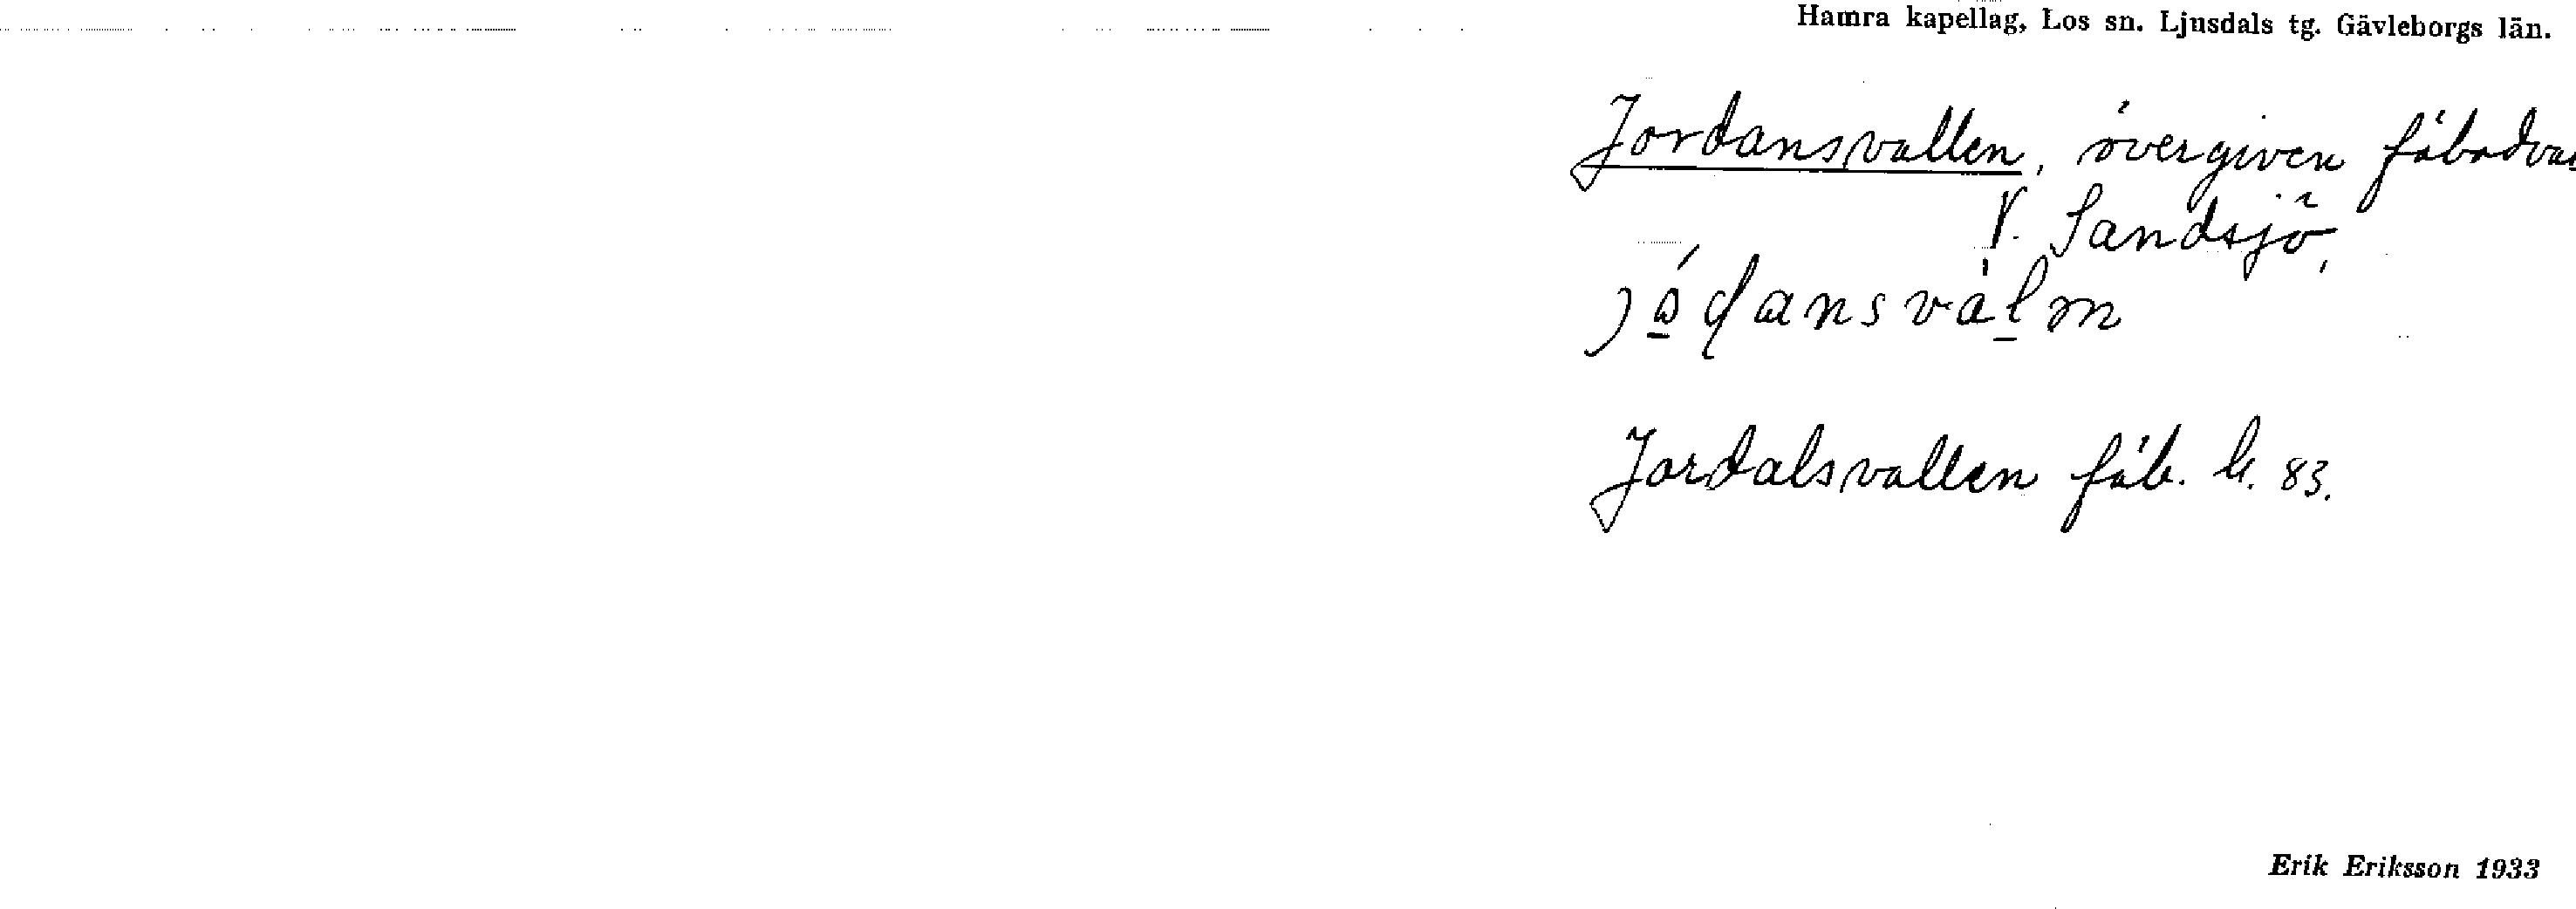 Hamra kapellag, Los sn. Ljusdals tg. Gävleborgs län.
Jordansvallen, övergiven fäbodval
V. Sandsjö,
Jordalsvallen fäb. k. 83.
Erik Eriksson 1933